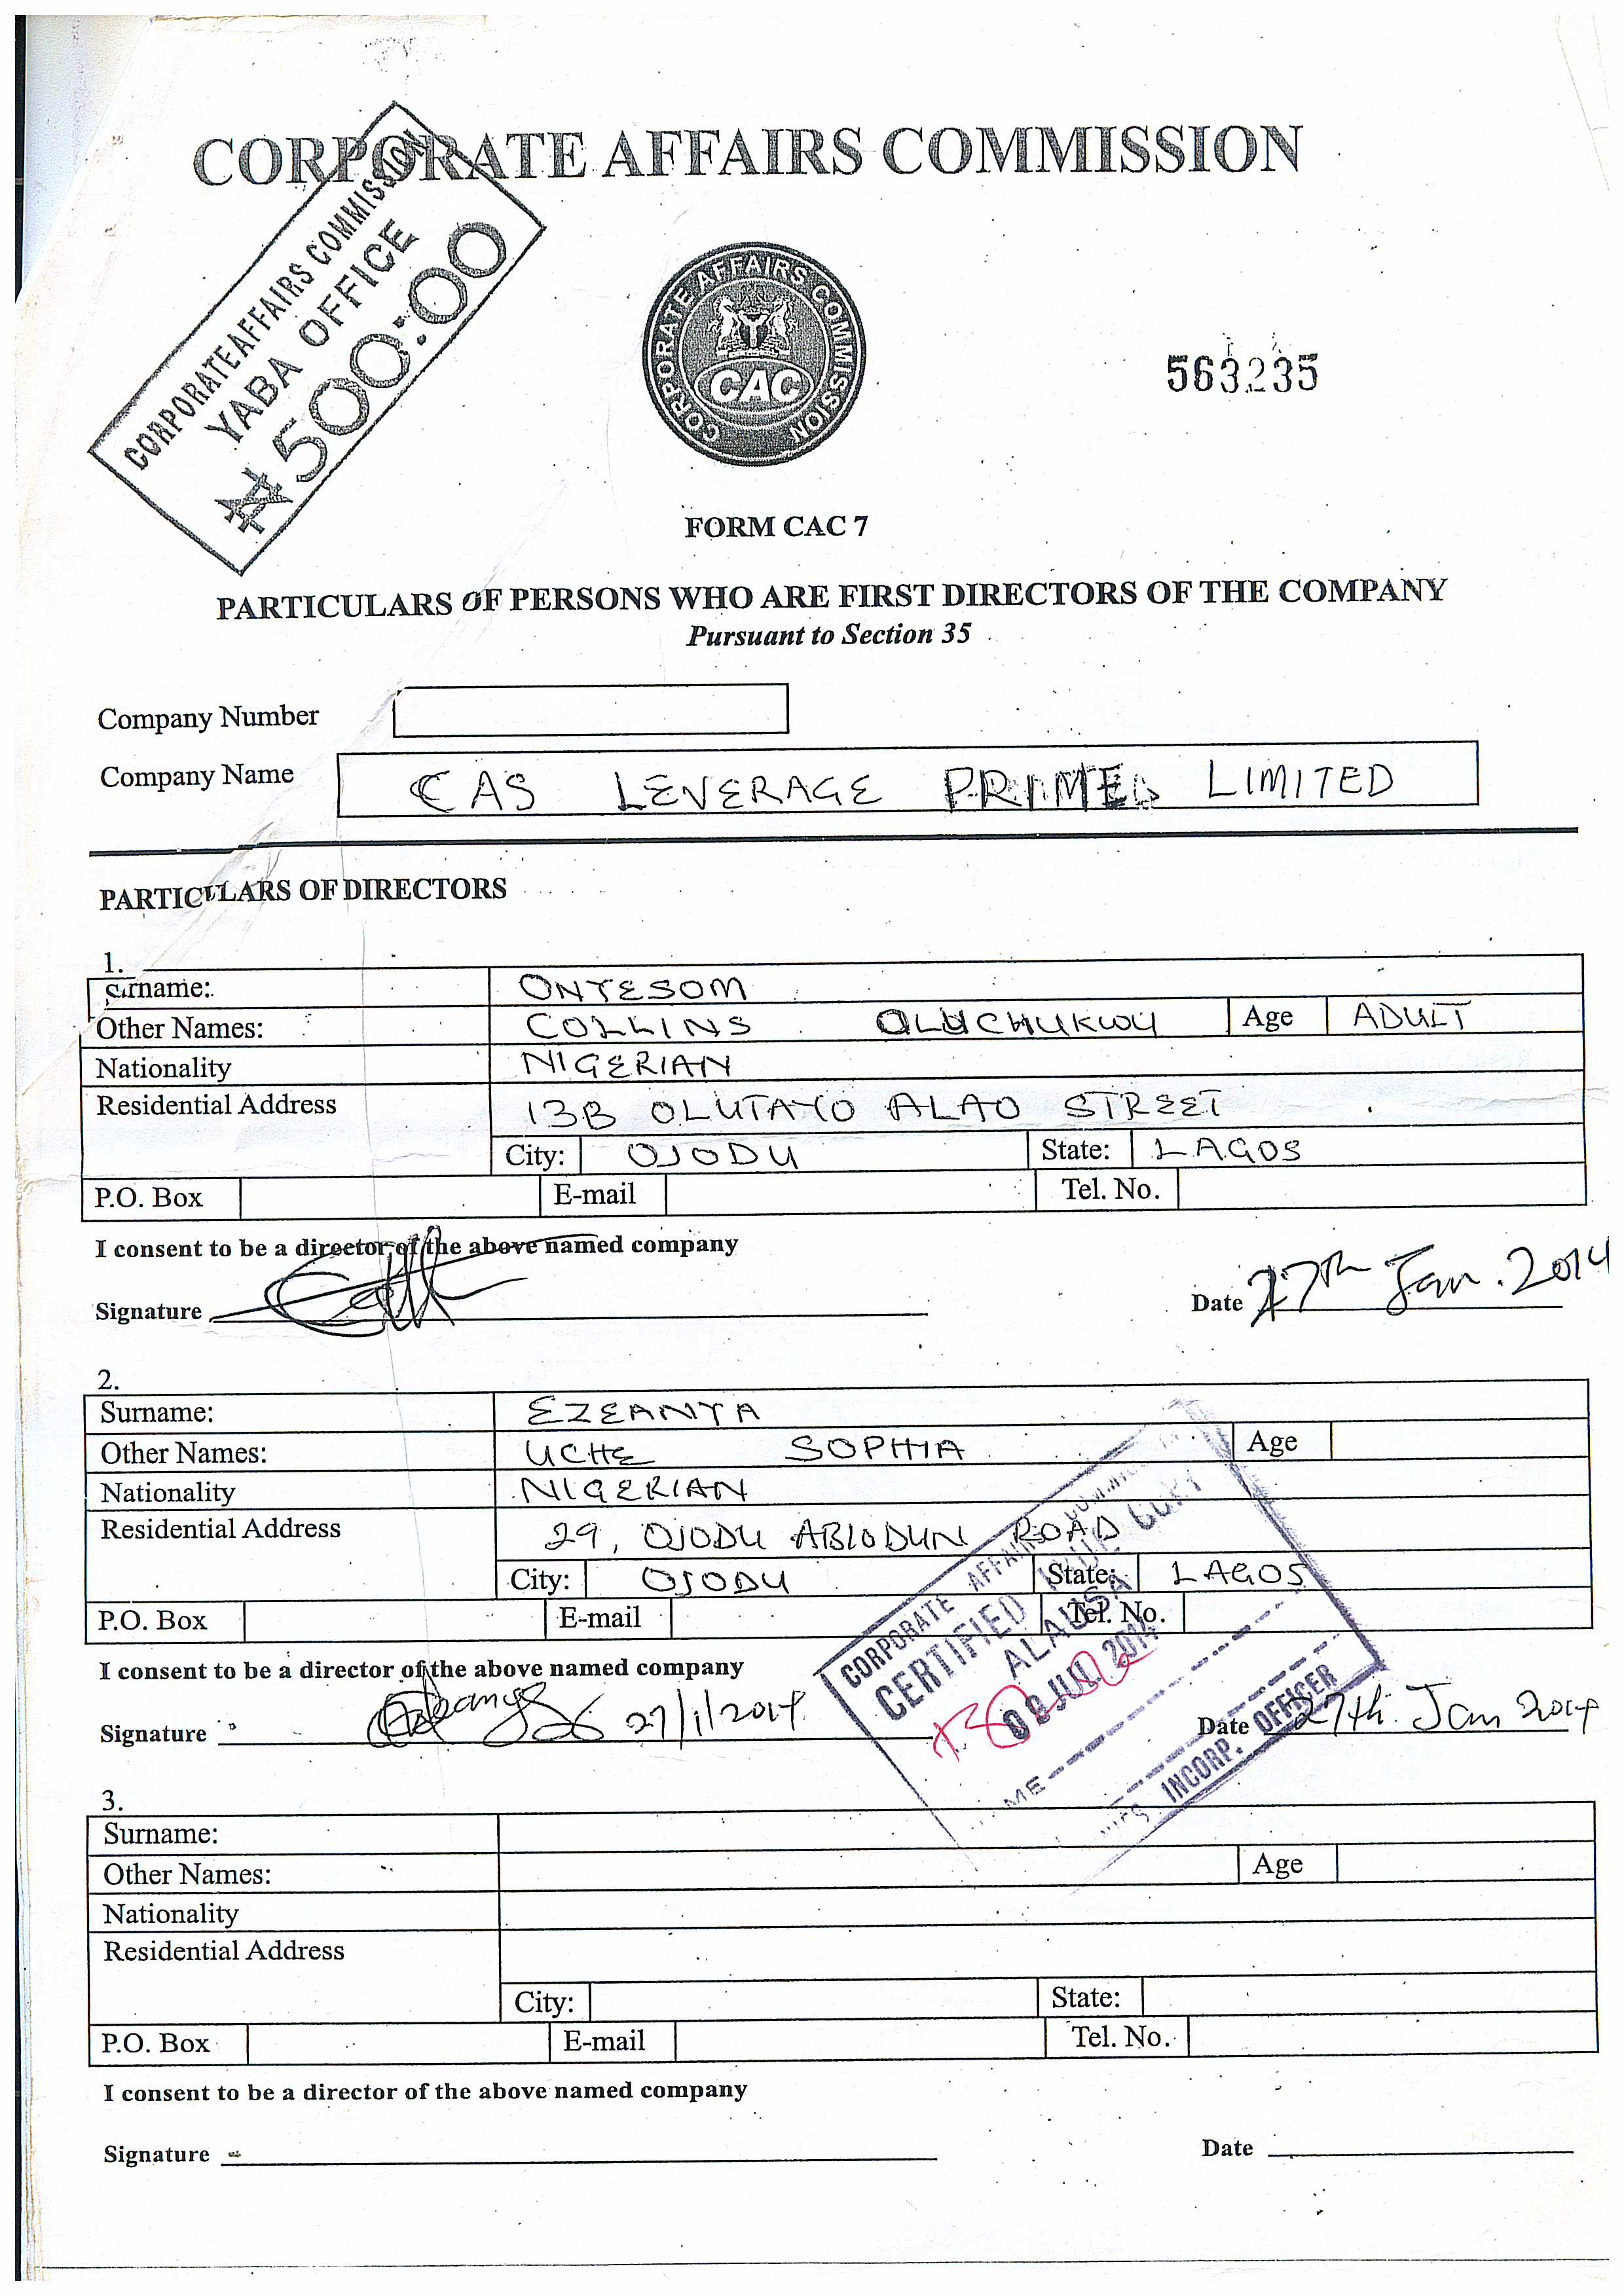 CORPORATE AFFAIRS COMMISSION
CORPORATE AFFAIRS COMMISSION
YABA OFFICE
₦500:00
CORPORATE AFFAIRS COMMISSION
CAC
563235
FORM CAC 7
PARTICULARS OF PERSONS WHO ARE FIRST DIRECTORS OF THE COMPANY
Pursuant to Section 35
Company Number
Company Name CAS LEVERAGE PRIME LIMITED
PARTICULARS OF DIRECTORS
1.
Surname: ONYESOM
Other Names: COLLINS OLUCHUKWU Age ADULT
Nationality NIGERIAN
Residential Address 13B OLUTAYO ALAO STREET
City: OJODU State: LAGOS
P.O. Box E-mail Tel. No.
I consent to be a director of the above named company
Signature Date 27th Jan. 2014
2.
Surname: EZEANYA
Other Names: UCHE SOPHIA Age
Nationality NIGERIAN
Residential Address 29, OJODU ABIODUN ROAD
City: OJODU State: LAGOS
P.O. Box E-mail Tel. No.
I consent to be a director of the above named company
Signature 27/1/2014 Date 27th Jan 2014
CORPORATE AFFAIRS
CERTIFIED TRUE COPY
ALAUSA
08 JUL 2014
INCORP. OFFICER
3.
Surname:
Other Names: Age
Nationality
Residential Address
City: State:
P.O. Box E-mail Tel. No.
I consent to be a director of the above named company
Signature Date